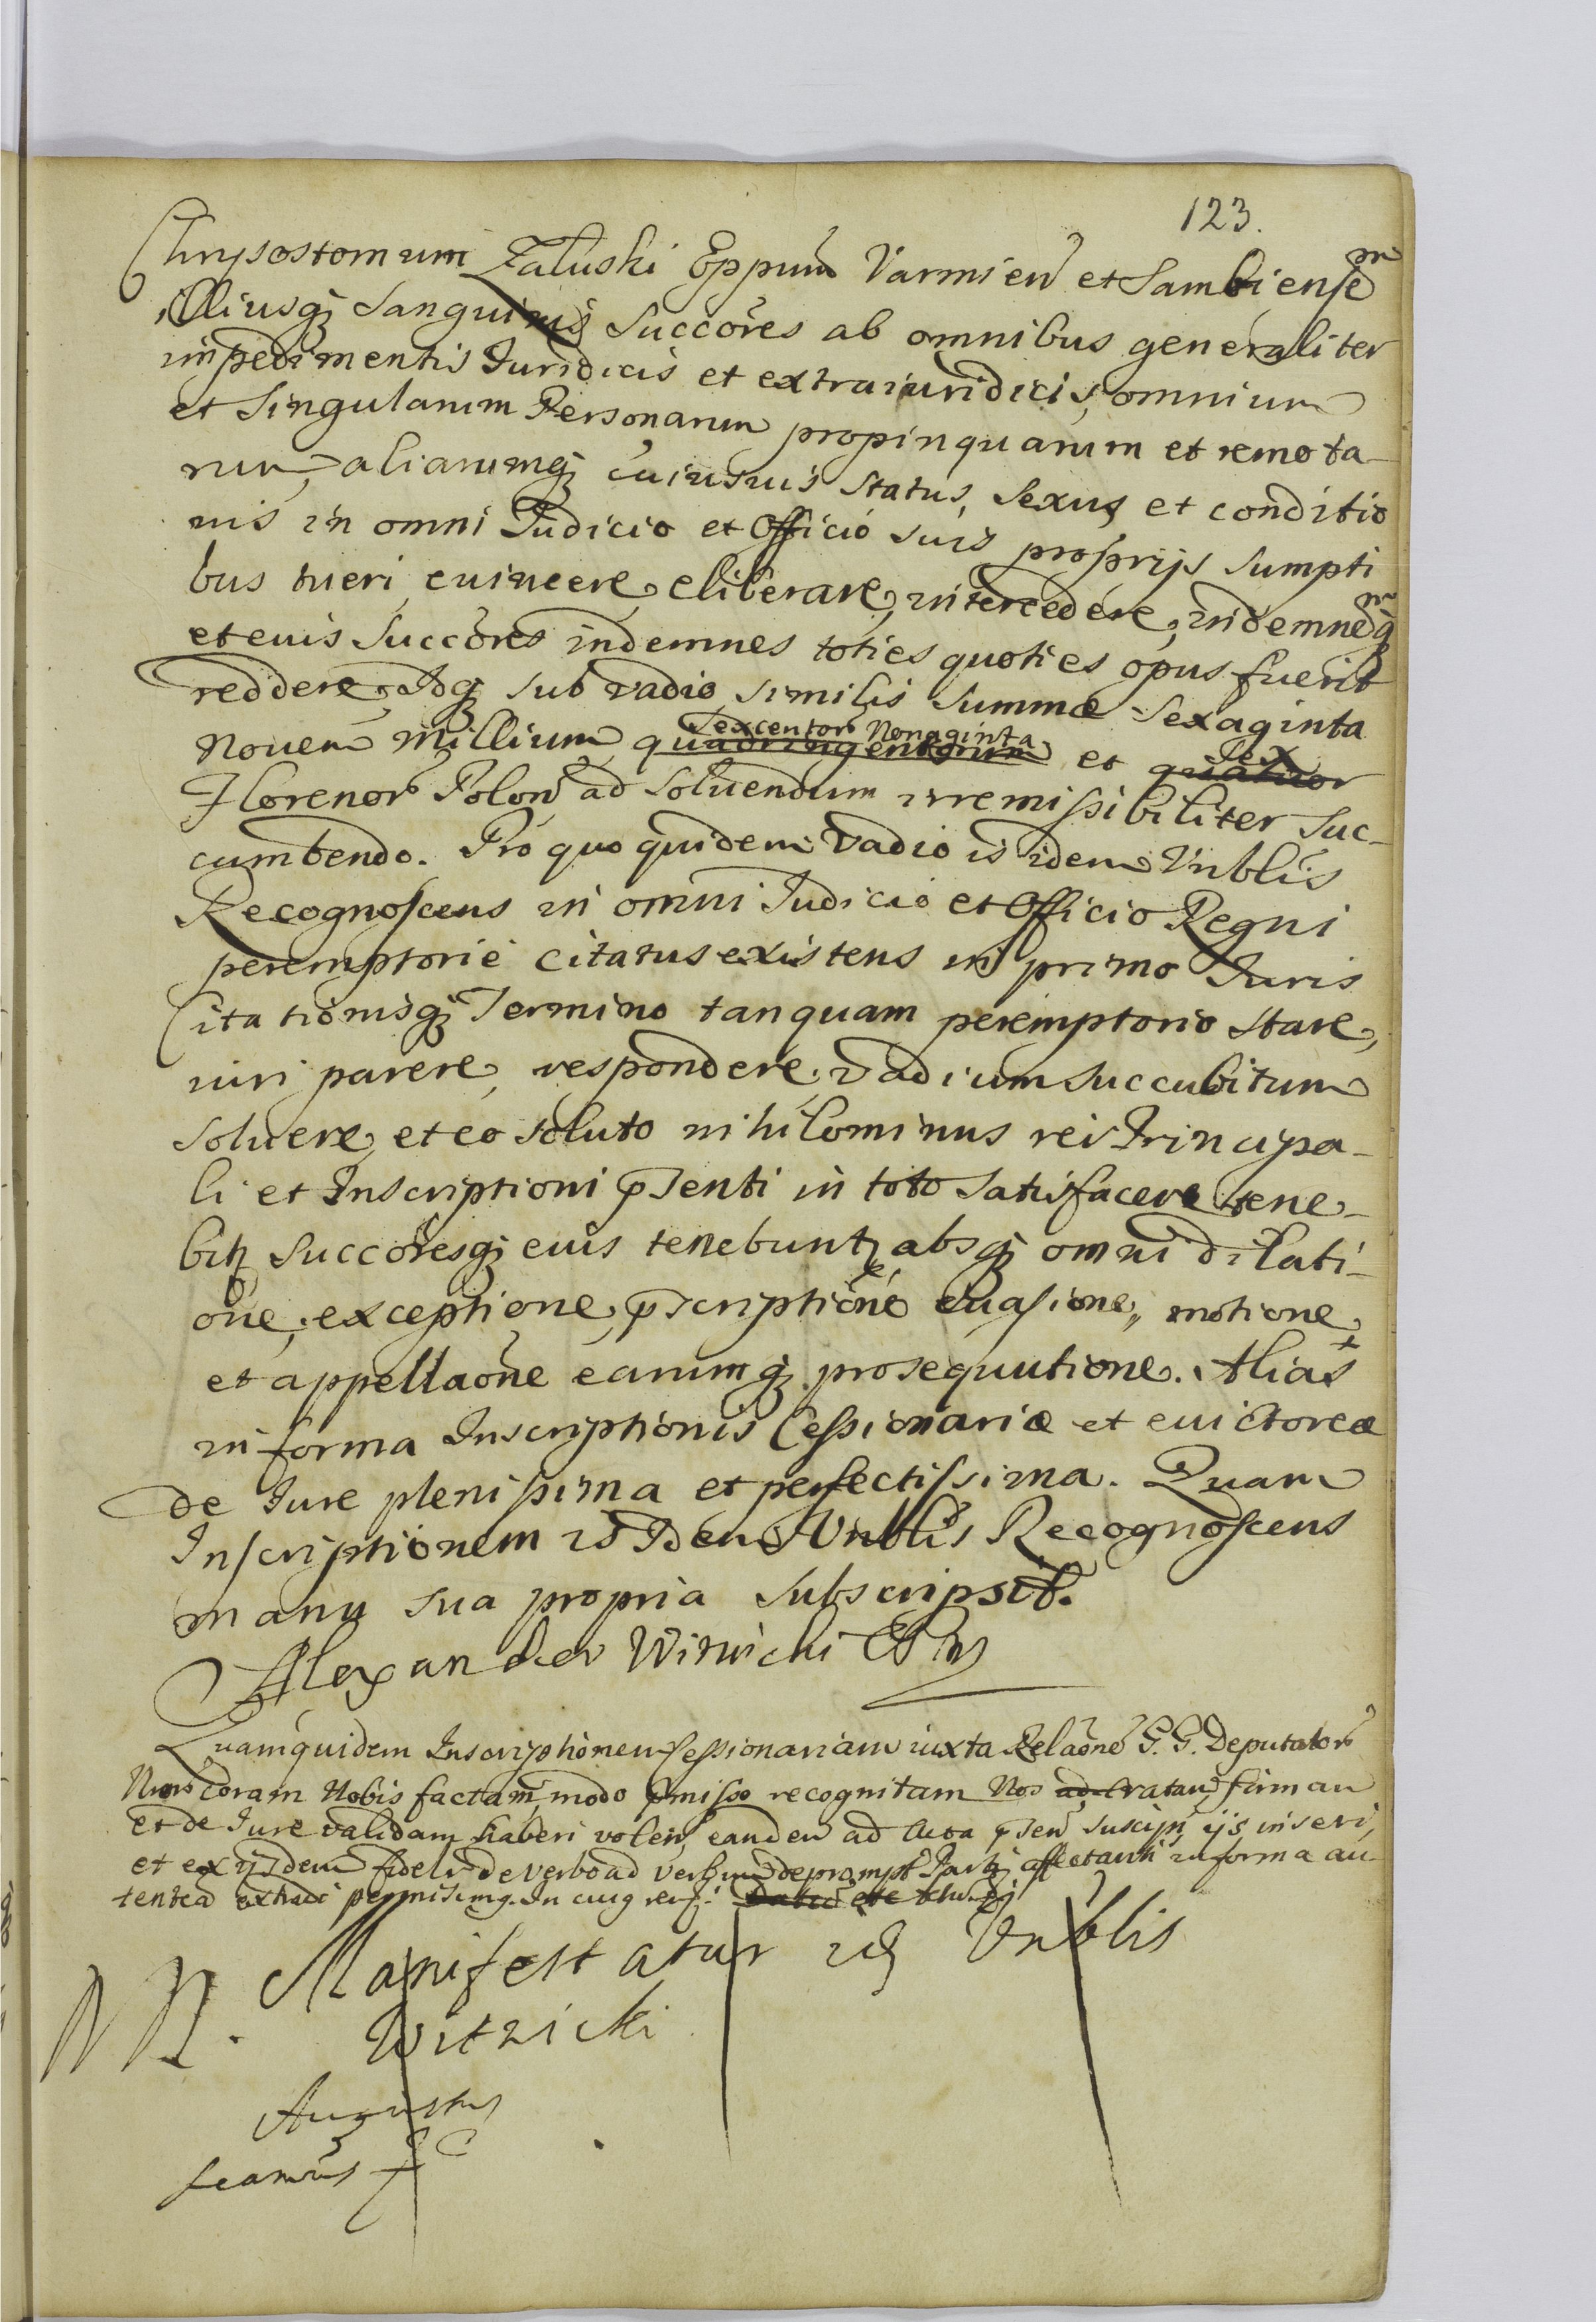 123.
Chrysostomum Zaluski Eppum Varmien et Sambiensem
Illiusq; Sanguinis Succores ab omnibus generaliter
impedimentis Iuridicis et extraiuridicis, omnium
et Singularum Personarum propinquarum et remota-
rum, aliarumq; cuiusuis Status, Sexus et conditio
nis in omni Iudicio et Officio suis proprijs sumpti
bus tueri, euincere, eliberare, intercedere, indemnemq;
et euis Succores indemnes toties quoties opus fuerit
reddere, Idq; sub vadio similis Summæ Sexaginta
Sexcentor Nonaginta Sex
Nouem Millium quadringentorum et quatuor
Florenor Polon ad soluendum irremissibiliter suc-
cumbendo. Pro quo quidem Vadio is idem Vrblis
Recognoscens in omni Iudicio et Officio Regni
peremptorie citatus existens in primo Iuris
Citationisq; Termino tanquam peremptorio stare,
iuri parere, respondere, vadium succubitum
soluere, et eo soluto nihilominus rei Principa-
li et Inscriptioni pnti in toto satisfacere tene-
bitr Succoresq; euis tenebuntr absq; omni dilati-
one, exceptione, pscriptione euasione, motione
et appellaone earumq; prosequutione. Alias +
in forma Inscriptionis Cessionariæ et euictoreæ
de Iure plenissima et perfectissima. Quam
Inscriptionem is Idem Vrblis Recognoscens
manu sua propria subscripsit.
Alexander Witwicki
Quamquidem Inscriptionem Cessionariam iuxta Relaone G. G. Deputator
Nror coram Nobis factam, modo pmisso recognitam Nos firman
et de Iure validam haberi volen, eandem ad Acta psen suscipi, ijs inseri,
et ex ijsdem fidelr de verbo ad verbum deprompt Parti affectanti in forma au-
tentca extradi permisimq. In cuiq rei f:
NB. Manifestatur Vrblis
Witwicki
Augustus